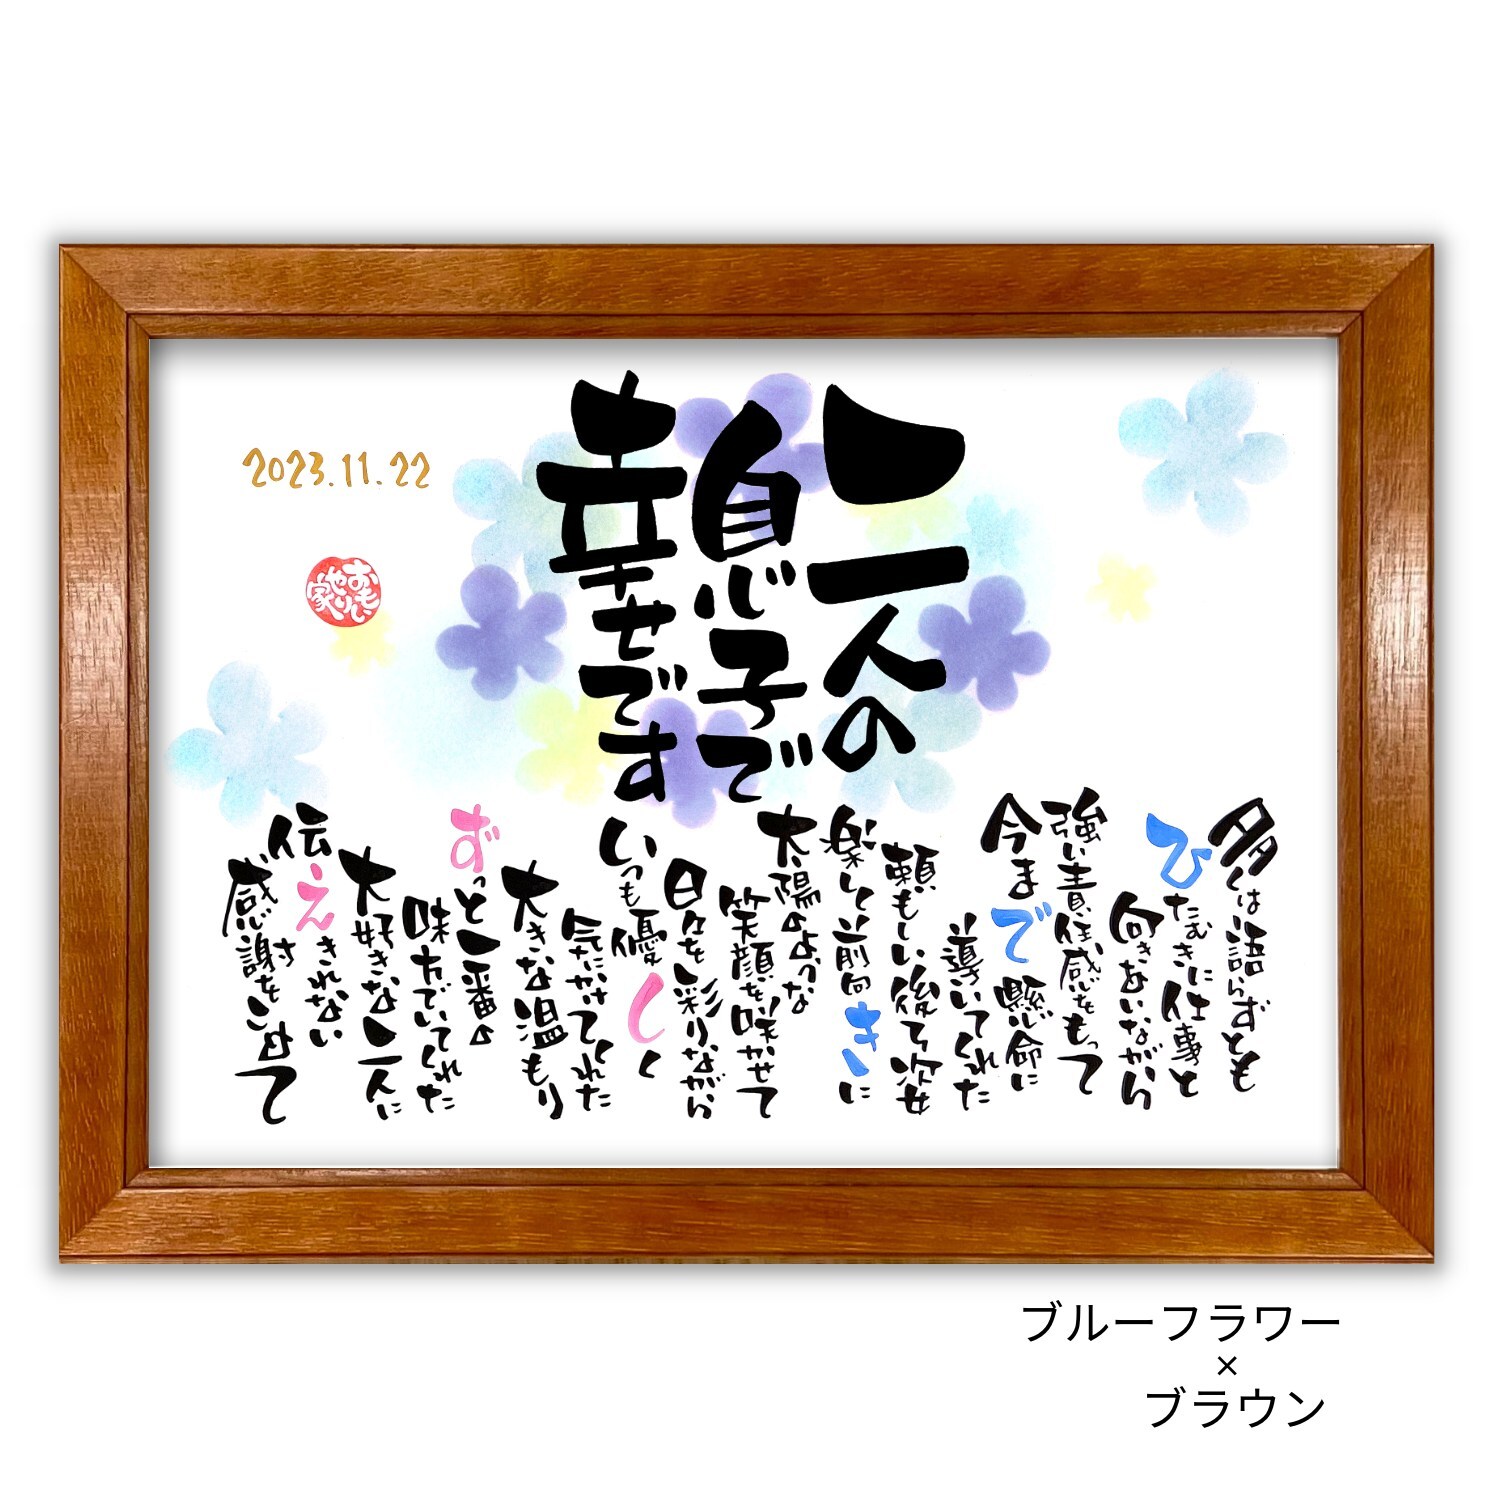 二人の
息子で
幸せです
2023.11.22
おもい
やり
家
多くは語らずとも
ひたむきに仕事と
向きあいながら
強い責任感をもって
今まで懸命に
導いてくれた
頼もしい後ろ姿
楽しく前向きに
太陽のような
笑顔を咲かせて
日々を彩りながら
いつも優しく
気にかけてくれた
大きな温もり
ずっと一番の
味方でいてくれた
大好きな二人に
伝えきれない
感謝を込めて
ブルーフラワー
×
ブラウン